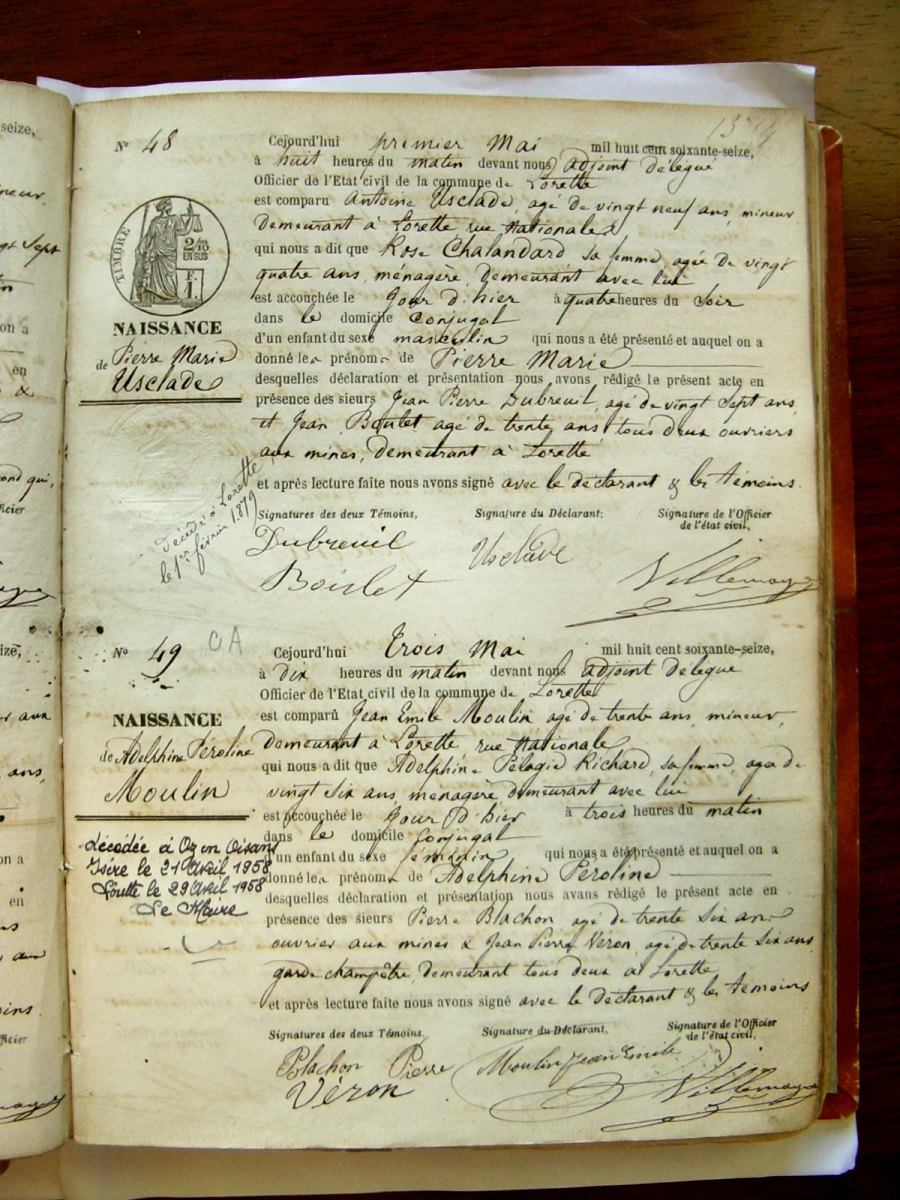 seize,
N° 48
Cejourd'hui premier Mai mil huit cent soixante-seize,
à huit heures du matin devant nous adjoint délégué
Officier de l'Etat civil de la commune de Lorette
est comparu Antoine Usclade, agé de vingt neuf ans, mineur
demeurant à Lorette rue Nationale
qui nous a dit que Rose Chalandard sa femme, agée de vingt
quatre ans, ménagère, demeurant avec lui
est accouchée le Jour d'hier à quatre heures du Soir
dans le domicile Conjugal
d'un enfant du sexe masculin qui nous a été présenté et auquel on a
donné les prénoms de Pierre Marie
desquelles déclaration et présentation nous avons rédigé le présent acte en
présence des sieurs Jean Pierre Dubreuil, agé de vingt Sept ans,
et Jean Boulet agé de trente ans, tous deux ouvriers
aux mines, demeurant à Lorette
et après lecture faite nous avons signé avec le déclarant & les témoins.
TIMBRE
2/10
EN SUS
F.
1.
NAISSANCE
de Pierre Marie
Usclade
Décédé à Lorette
le 1er février 1879
Signatures des deux Témoins,
Signature du Déclarant,
Signature de l'Officier
de l'état civil,
Dubreuil
Boulet
Usclade
Villemagne
N° 49
OA
Cejourd'hui trois Mai mil huit cent soixante-seize,
à dix heures du matin devant nous adjoint délégué
Officier de l'Etat civil de la commune de Lorette
est comparu Jean Emile Moulin agé de trente ans, mineur,
demeurant à Lorette, rue Nationale
qui nous a dit que Adelphine Pélagie Richard, sa femme, agée de
vingt six ans, ménagère demeurant avec lui
est accouchée le Jour d'hier à trois heures du matin
dans le domicile Conjugal
d'un enfant du sexe féminin qui nous a été présenté et auquel on a
donné les prénoms de Adelphine Péroline
desquelles déclaration et présentation nous avons rédigé le présent acte en
présence des sieurs Pierre Blachon, agé de trente six ans
ouvrier aux mines & Jean Pierre Véron agé de trente six ans,
garde champêtre, demeurant tous deux à Lorette
et après lecture faite nous avons signé avec le déclarant & les témoins
NAISSANCE
de Adelphine Péroline
Moulin
décédée à Oz en Oisans
Isère le 21 Avril 1958
le 29 Avril 1958
Le Maire
Signatures des deux Témoins,
Signature du Déclarant,
Signature de l'Officier
de l'état civil,
Blachon Pierre
Véron
Moulin Jean Emile
Villemagne